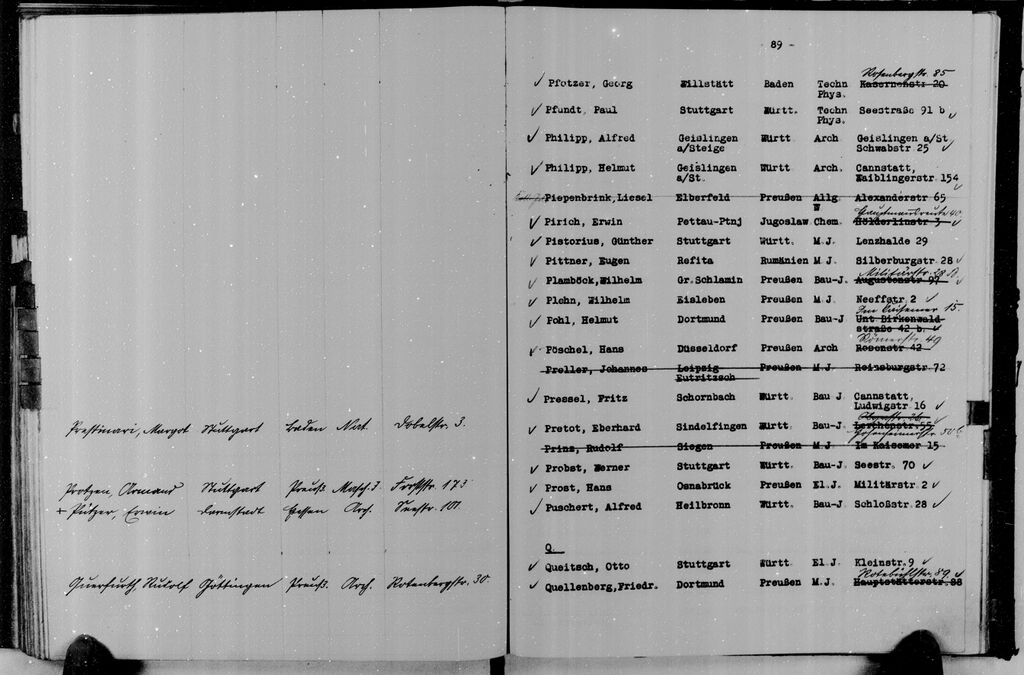 Prestinari, Margot Stuttgart Baden Nat. Dobelstr. 3.
Protzen, Armand Stuttgart Preuß. Masch.I. Forststr. 173
+ Pützer, Erwin Darmstadt Hessen Arch. Seestr. 101.
Querfurth, Rudolf Göttingen Preuß. Arch. Rotenbergstr. 30.
89 -
Rotenbergstr. 85
✓ Pfotzer, Georg Willstätt Baden Techn Kasernenstr 20
Phys.
✓ Pfundt, Paul Stuttgart Württ. Techn Seestraße 91 b ✓
Phys.
✓ Philipp, Alfred Geislingen Württ Arch Geislingen a/St
a/Steige Schwabstr 25 ✓
✓ Philipp, Helmut Geislingen Württ Arch. Cannstatt,
a/St. Waiblingerstr 154
✓
Piepenbrink, Liesel Elberfeld Preußen Allg Alexanderstr 65
W
✓ Pirich, Erwin Pettau-Ptnj Jugoslaw Chem. Hölderlinstr 3 ✓
✓ Pistorius, Günther Stuttgart Württ. M.J. Lenzhalde 29
✓ Pittner, Eugen Refita Rumänien M.J. Silberburgstr 28 ✓
Militärstr.
✓ Plamböck, Wilhelm Gr.Schlamin Preußen Bau-J. Augustenstr 97 ✓
✓ Plohn, Wilhelm Eisleben Preußen M.J. Neeffstr 2 ✓
Im Kaisemer 15.
✓ Pohl, Helmut Dortmund Preußen Bau-J Unt Birkenwald
straße 42 b. ✓
Römerstr. 49
✓ Pöschel, Hans Düsseldorf Preußen Arch Rosenstr 42
Preller, Johannes Leipzig Preußen M.J Reinsburgstr 72
Eutritzsch
✓ Pressel, Fritz Schornbach Württ. Bau J Cannstatt,
Ludwigstr 16 ✓
✓ Pretot, Eberhard Sindelfingen Württ. Bau-J. Lerchenstr.55
Prinz, Rudolf Siegen Preußen M.J Im Kaisemer 15
✓ Probst, Werner Stuttgart Württ. Bau-J. Seestr. 70 ✓
✓ Prost, Hans Osnabrück Preußen El.J. Militärstr 2 ✓
✓ Puschert, Alfred Heilbronn Württ. Bau-J Schloßstr 28 ✓
Q.
✓ Queitsch, Otto Stuttgart Württ El J Kleinstr.9 ✓
Rotebühlstr. 89. ✓
✓ Quellenberg,Friedr. Dortmund Preußen M.J. Hauptstätterstr.88